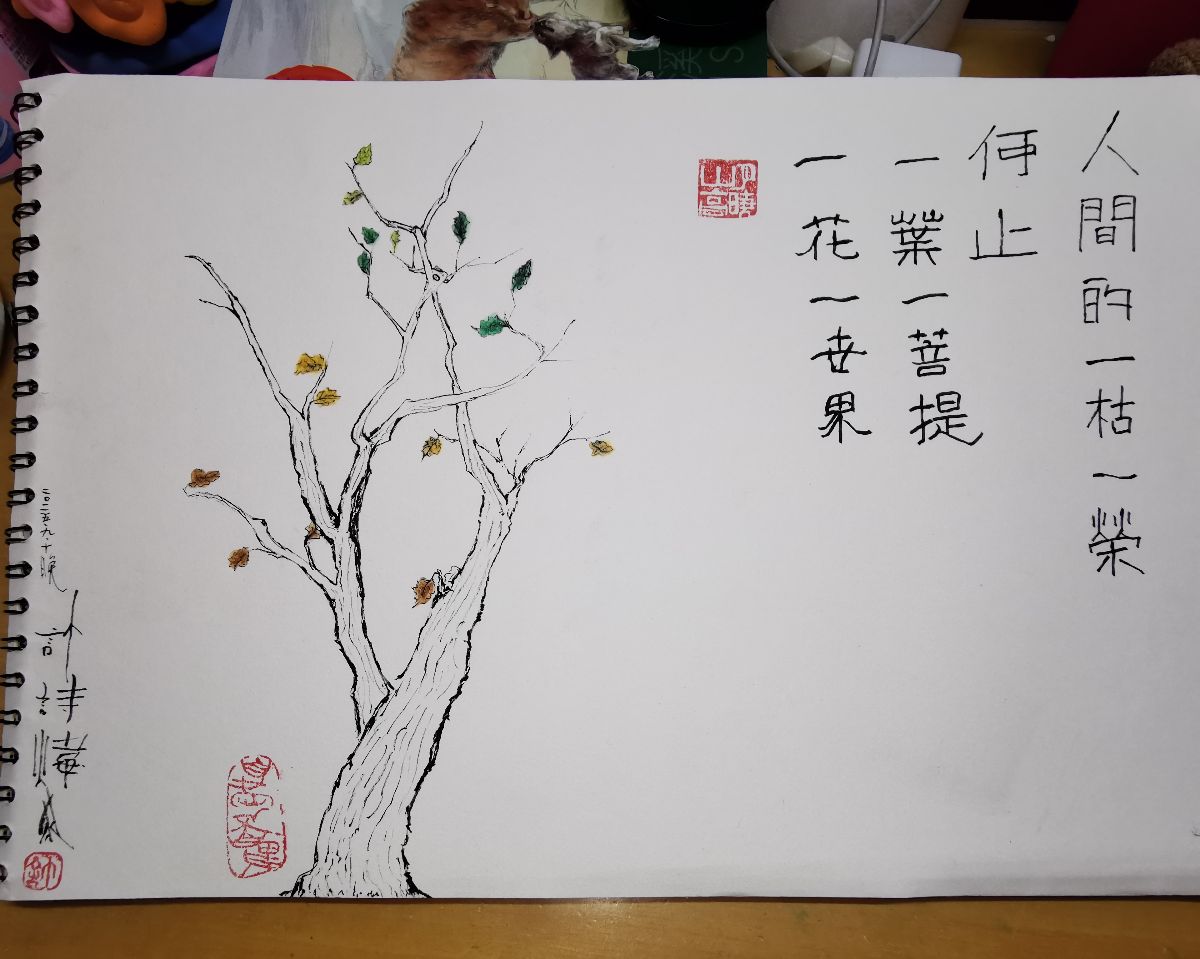 人間的一枯一榮
何止
一葉一菩提
一花一世果
二〇二五.九.十晚